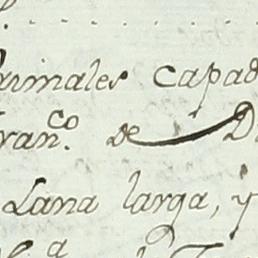 nimales capad
ran.co de D
Lana larga, y